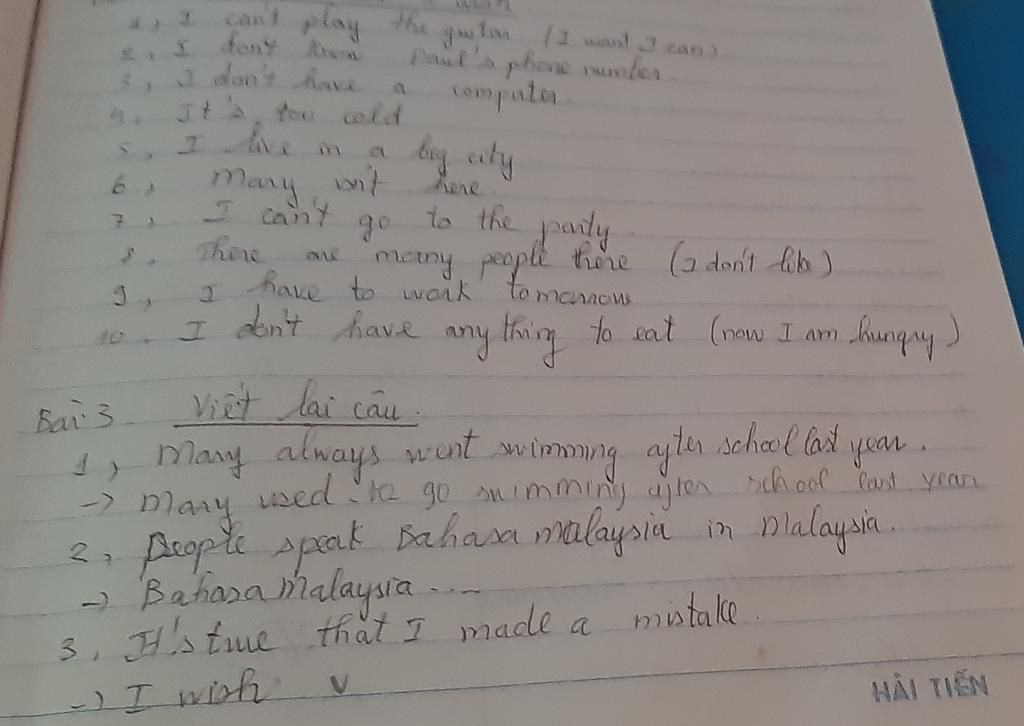 wish
1, I can't play the guitar (I want I can)
2, I don't know Paul's phone number.
3, I don't have a computer.
4. It's too cold
5, I live in a big city
6, Mary isn't here
7, I can't go to the party.
8. There are many people there (I don't like)
9, I have to work tomorrow
10. I don't have any thing to eat (now I am hungry)
Bài 3 Viết lại câu.
1, Mary always went swimming after school last year.
-> Mary used to go swimming after school last year
2, People speak Bahasa malaysia in Malaysia.
-> Bahasa Malaysia ....
3, It's true that I made a mistake.
-> I wish v
HẢI TIẾN